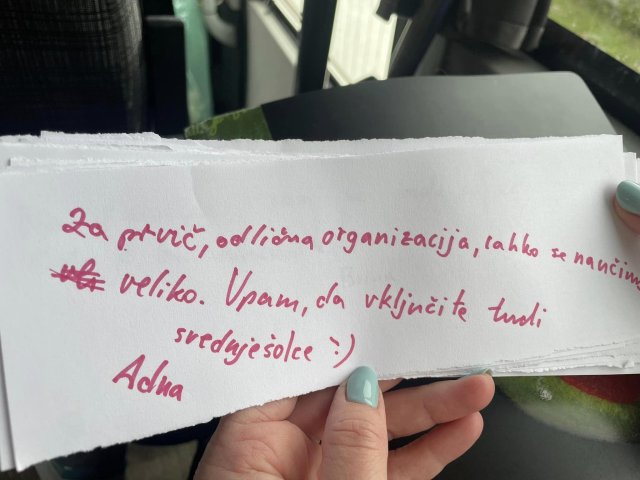 Za prvič, odlična organizacija, lahko se naučimo
veliko. Upam, da vključite tudi
srednješolce :)
Adna